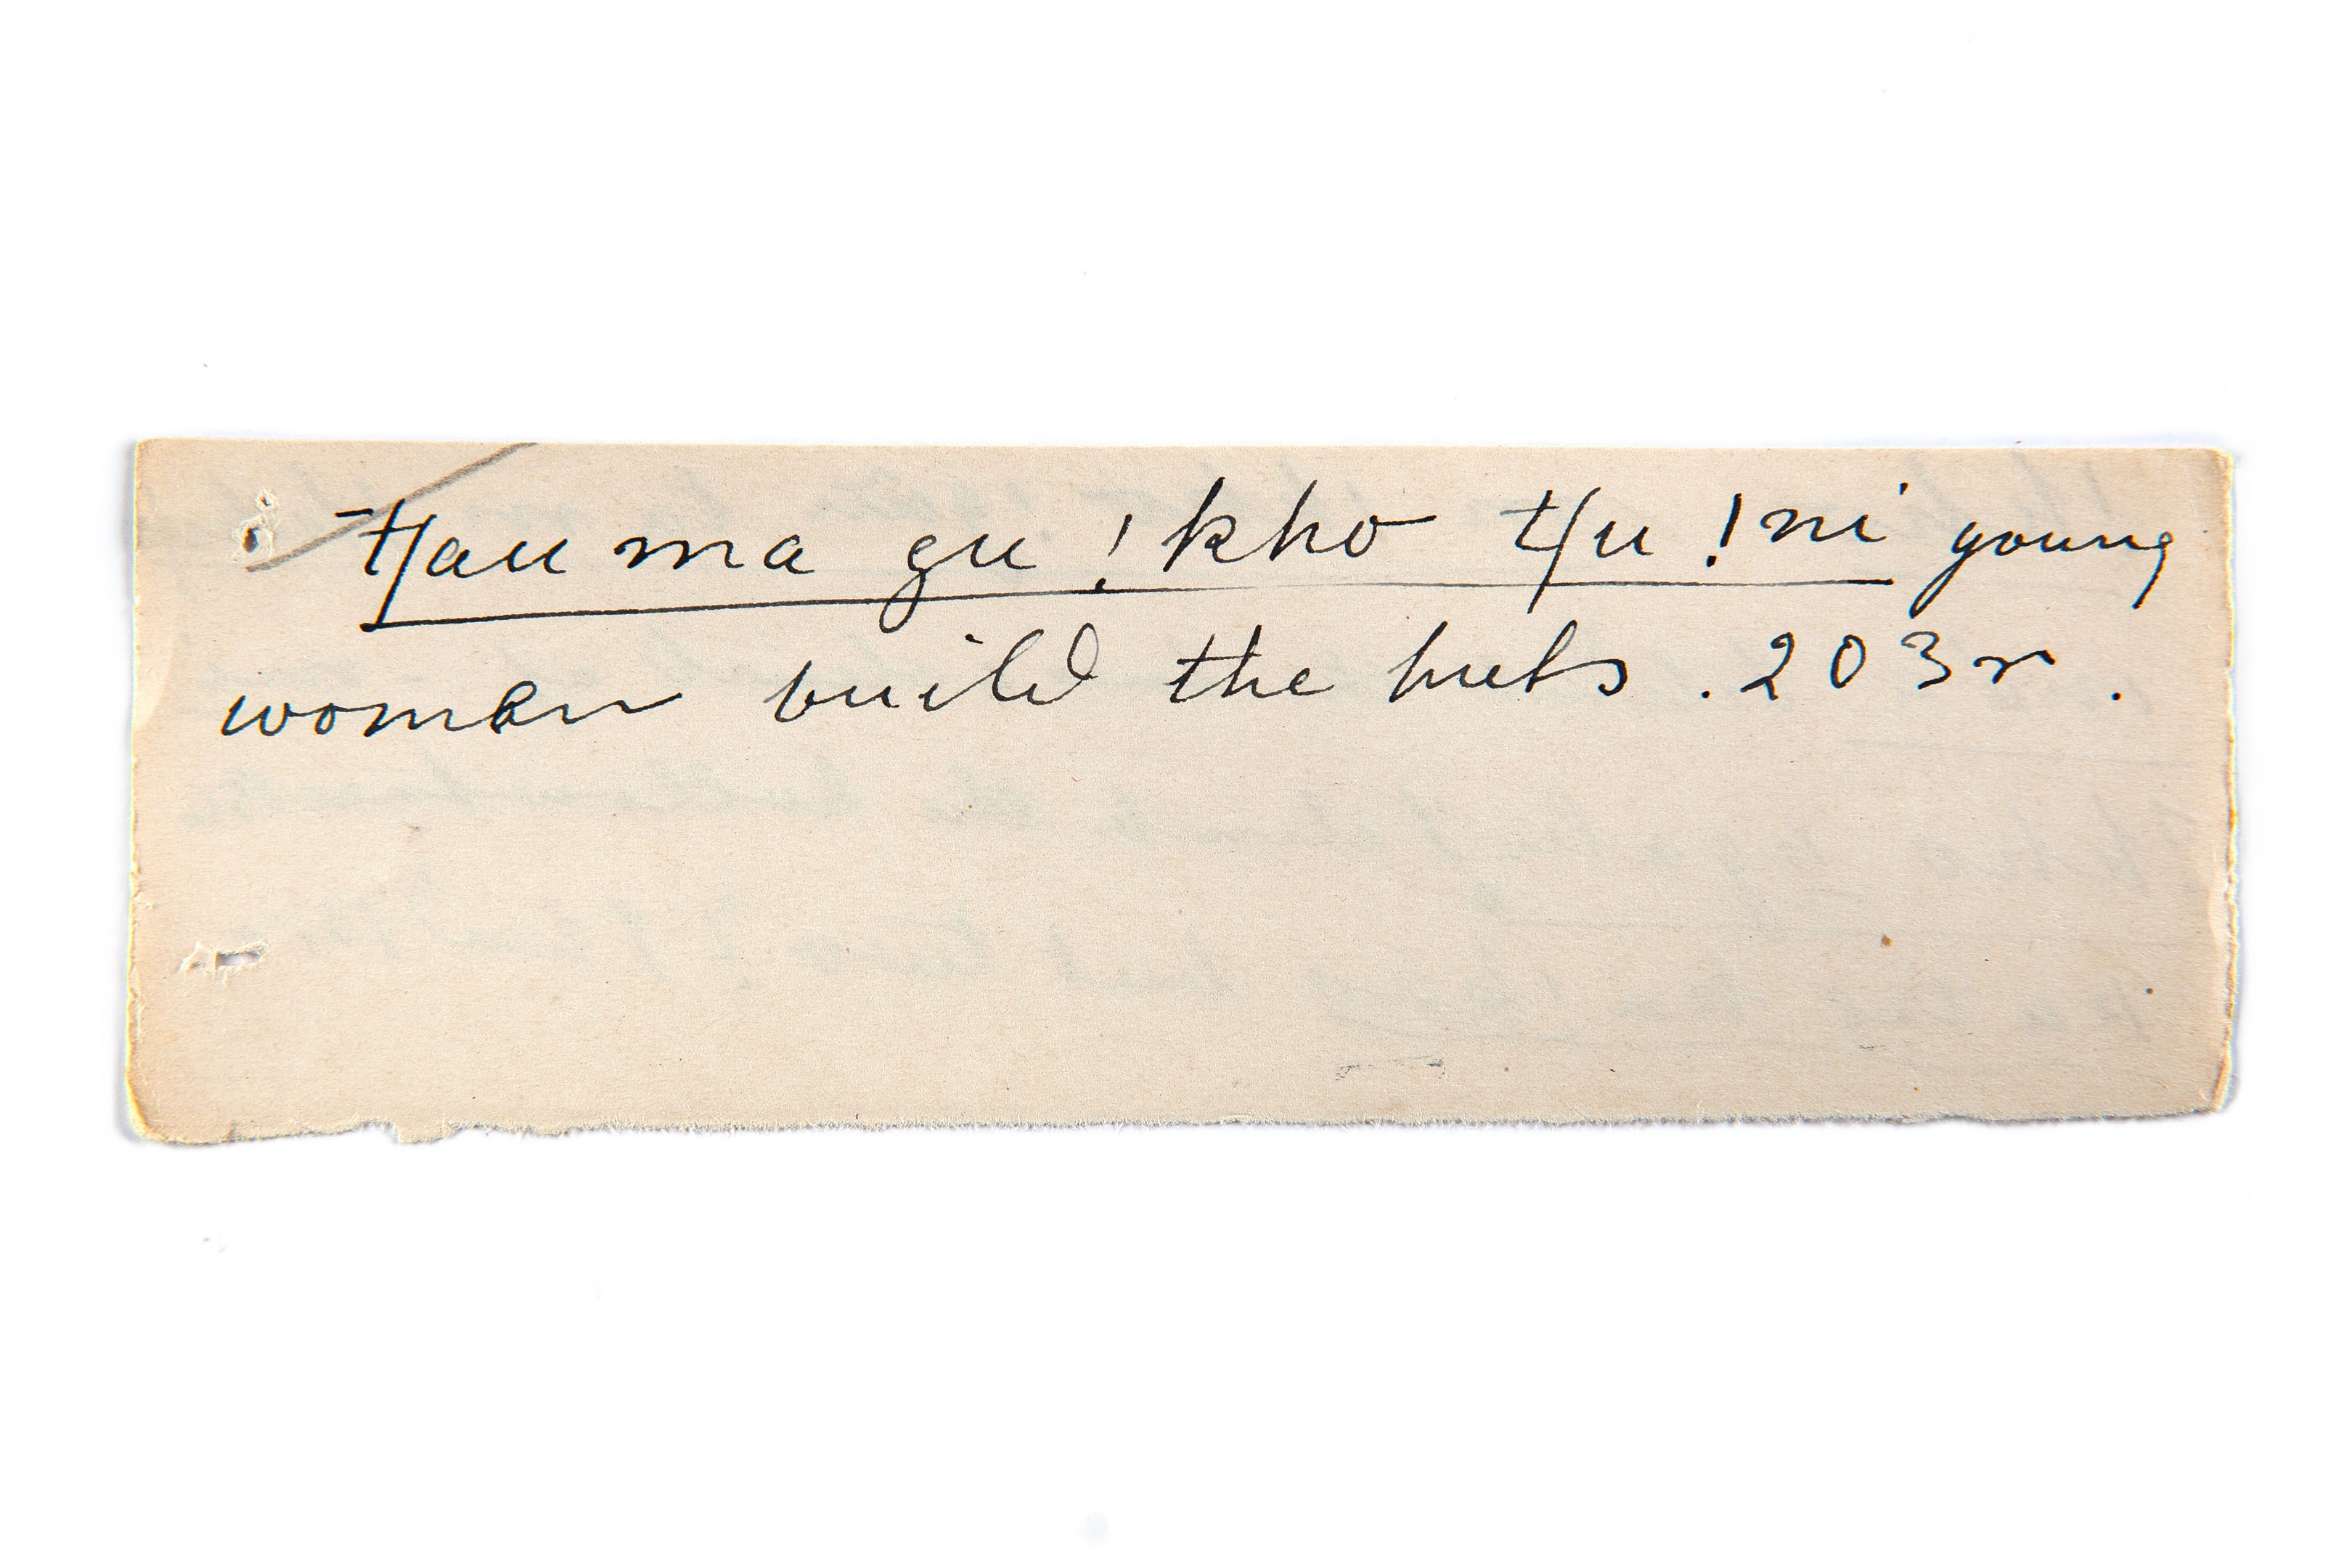 t/au ma gu !kho t/u !ni young
women build the huts . 203r .